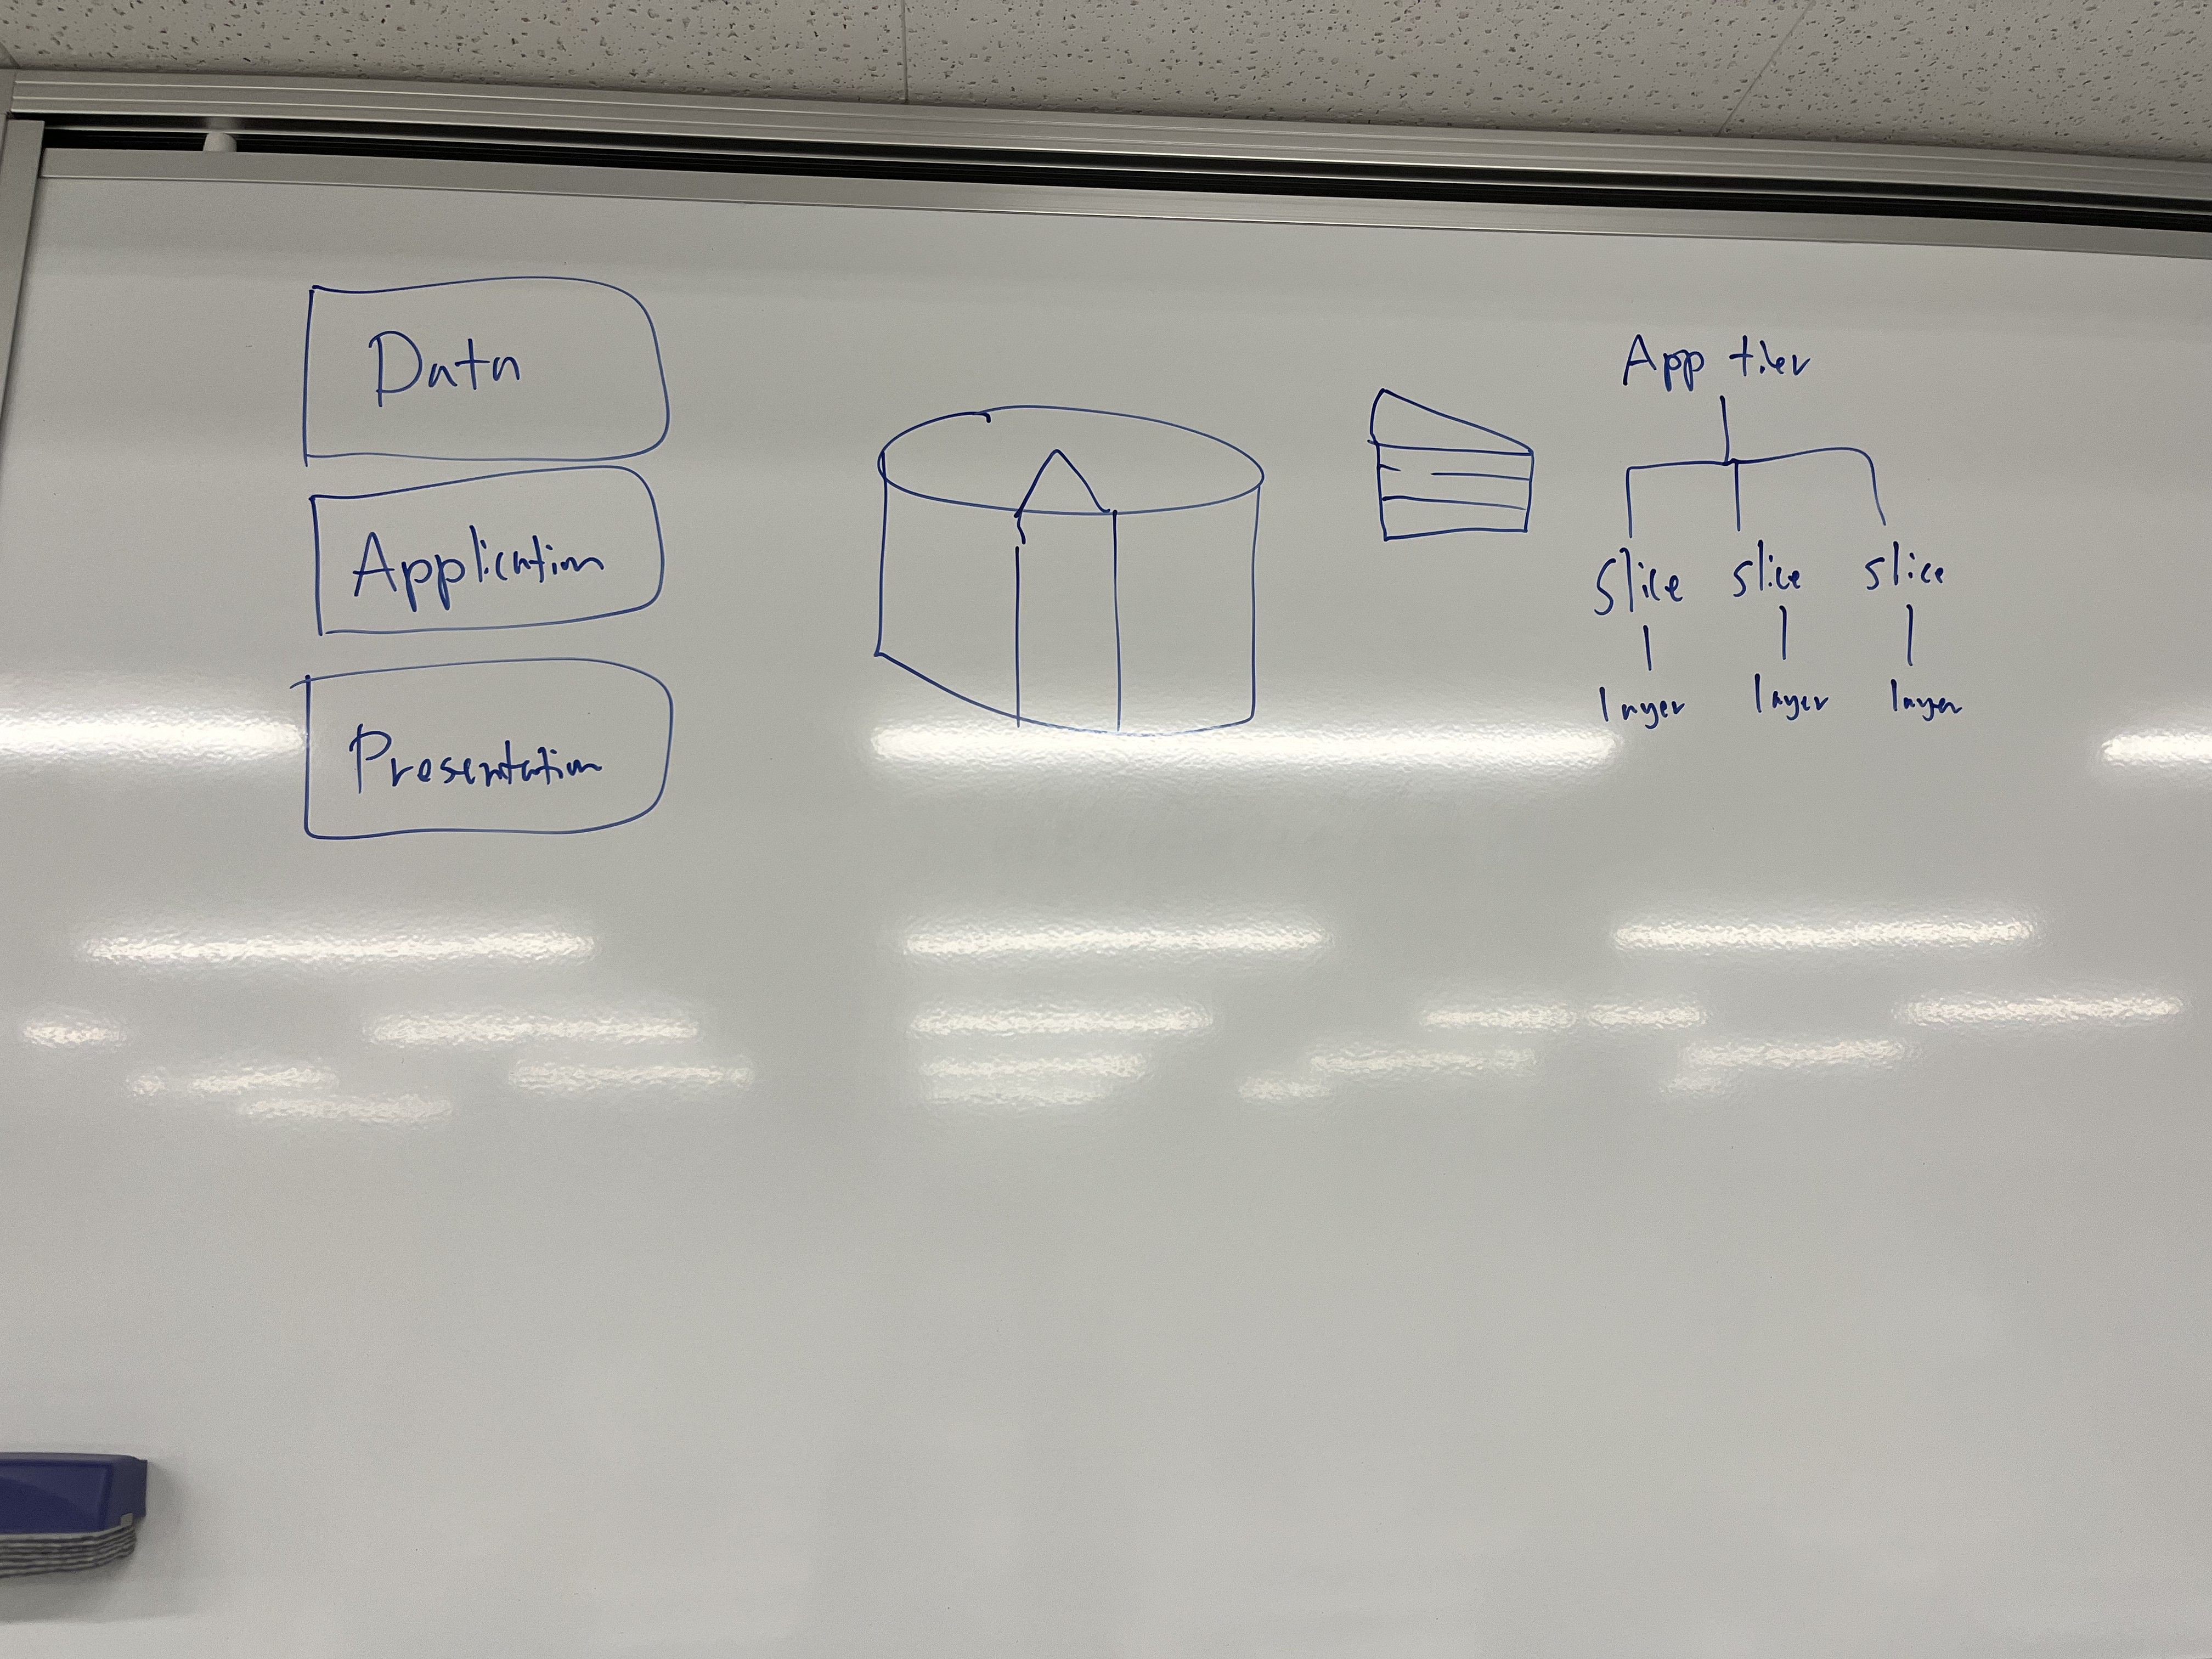 Data
Application
Presentation
App tier
Slice slice slice
layer layer layer